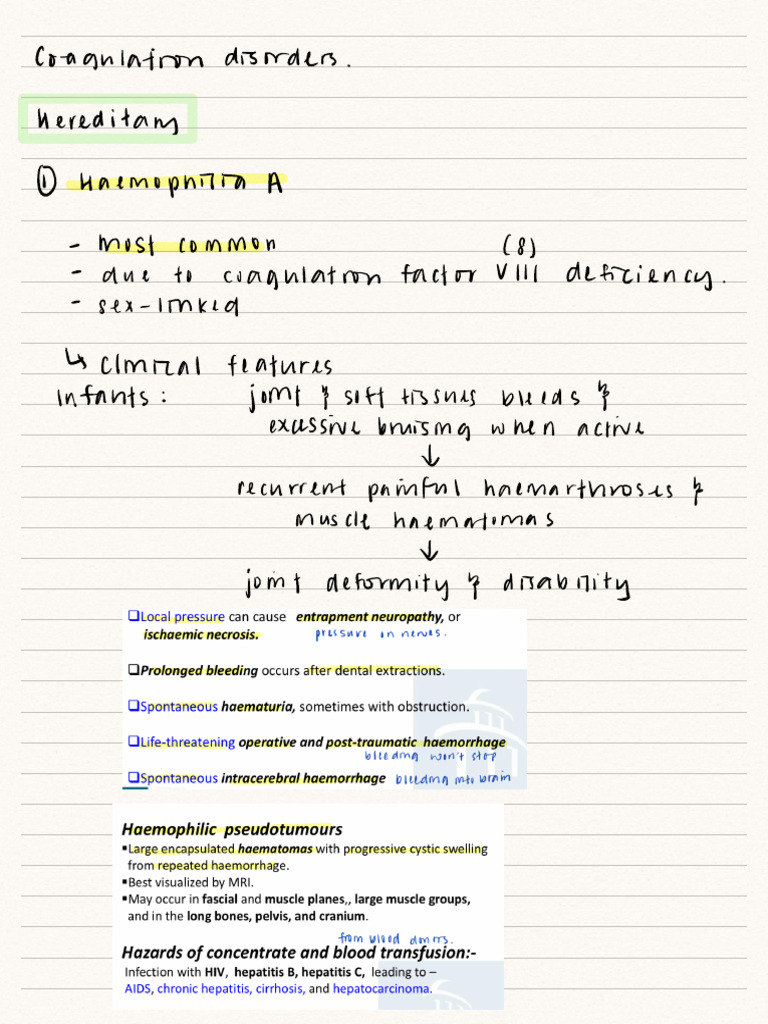 Coagulation disorders.
Hereditary
① Haemophilia A
- most common
(8)
- due to coagulation factor VIII deficiency.
- sex-linked
↳ Clinical features
infants : joint & soft tissues bleeds &
excessive bruising when active
↓
recurrent painful haemarthroses &
muscle haematomas
↓
joint deformity & disability
❑Local pressure can cause entrapment neuropathy, or
ischaemic necrosis. pressure on nerves.
❑Prolonged bleeding occurs after dental extractions.
❑Spontaneous haematuria, sometimes with obstruction.
❑Life-threatening operative and post-traumatic haemorrhage
bleeding won't stop
❑Spontaneous intracerebral haemorrhage bleeding into brain
Haemophilic pseudotumours
▪Large encapsulated haematomas with progressive cystic swelling
from repeated haemorrhage.
▪Best visualized by MRI.
▪May occur in fascial and muscle planes,, large muscle groups,
and in the long bones, pelvis, and cranium.
from blood donors.
Hazards of concentrate and blood transfusion:-
Infection with HIV, hepatitis B, hepatitis C, leading to –
AIDS, chronic hepatitis, cirrhosis, and hepatocarcinoma.